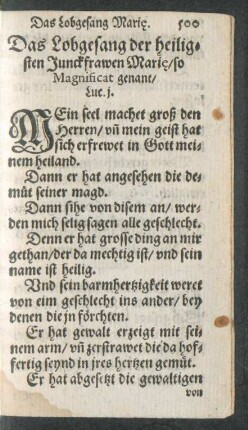 Das Lobgesang Marię. 500
Das Lobgesang der heilig⸗
sten Junckfrawen Marię/so
Magnificat genant/
Luc. j.
MEin seel machet groß den
Herren/ vñ mein geist hat
sich erfrewet in Gott mei⸗
nem heiland.
Dann er hat angesehen die de⸗
müt seiner magd.
Dann sihe von disem an/ wer⸗
den mich selig sagen alle geschlecht.
Denn er hat grosse ding an mir
gethan/der da mechtig ist/ vnd sein
name ist heilig.
Vnd sein barmhertzigkeit weret
von eim geschlecht ins ander/ bey
denen die jn förchten.
Er hat gewalt erzeigt mit sei⸗
nem arm/ vñ zerstrawet die da hof⸗
fertig seynd in jres hertzen gemüt.
Er hat abgesetzt die gewaltigen
von